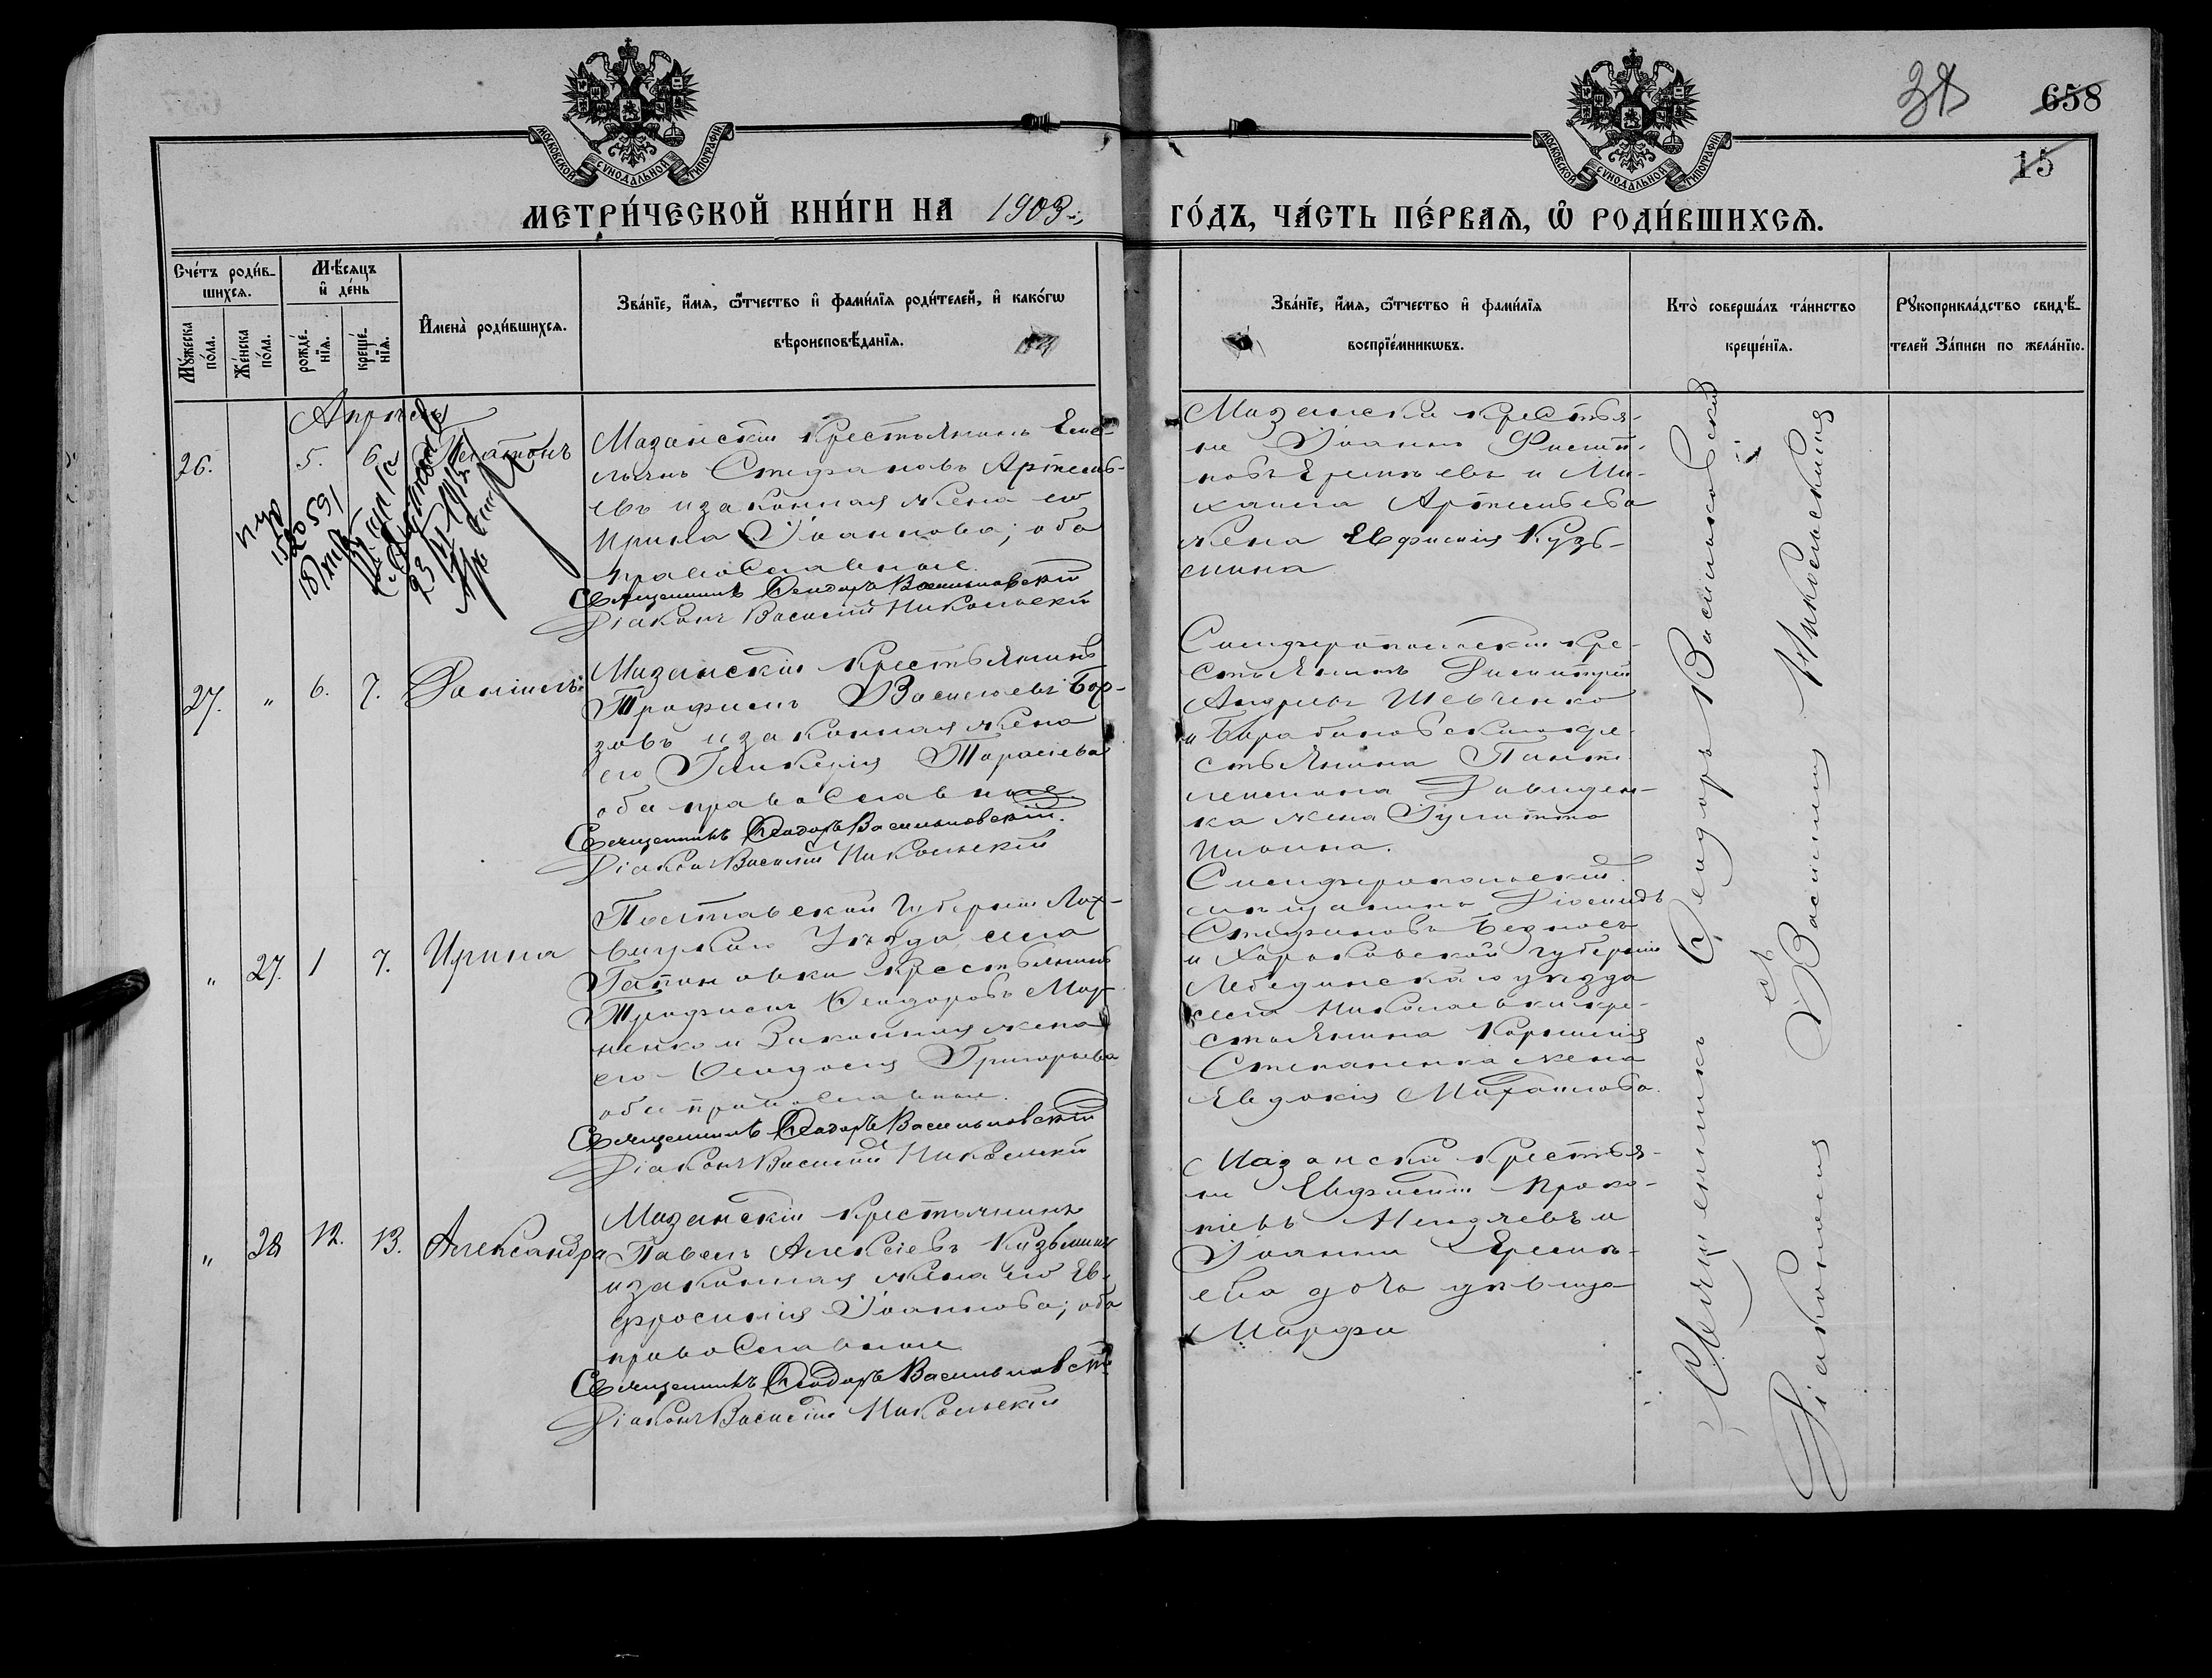 38
658
15
МОСКОВСКОЙ СѴНОДАЛЬНОЙ ТИПОГРАФІИ
МОСКОВСКОЙ СѴНОДАЛЬНОЙ ТИПОГРАФІИ
МЕТРИ́ЧЕСКОЙ КНИ́ГИ НА 1903
ГО́ДЪ, ЧА́СТЬ ПЕ́РВАѦ, Ѡ҆ РОДИ́ВШИХСѦ.
Сче́тъ роди́в-
шихсѧ.
Мѣ́сѧцъ
и҆ де́нь
Мꙋ́жеска
по́ла.
Же́нска
по́ла.
рожде́-
нїѧ.
креще́-
нїѧ.
И҆мена̀ роди́вшихсѧ.
Зва́нїе, и҆́мѧ, ѻ҆́тчество и҆ фами́лїѧ роди́телей, и҆ како́гѡ
вѣроисповѣ́данїѧ.
Зва́нїе, и҆́мѧ, ѻ҆́тчество и҆ фами́лїѧ
воспрїе́мникѡвъ.
Кто̀ соверша́лъ та́инство
креще́нїѧ.
Рꙋкоприкла́дство свидѣ́-
телей За́писи по жела́нїю.
Апрѣль
26. 5. 6. Платонъ
Мазанскій крестьянинъ Еме-
льянъ Стефановъ Артемь-
евъ и законная жена его
Ирина Іоаннова; оба
православные.
Священникъ Ѳеодоръ Васильковскій
Діаконъ Василій Никольскій
Мазански крестья-
не Іоаннъ Филип-
повъ Еремѣевъ и Ми-
хаила Артемьева
жена Евфимія Кузь-
мина
27. " 6. 7. Даніилъ
Мазанскій крестьянинъ
Трофимъ Васильевъ Бор-
зовъ и законная жена
его Гликерія Тарасіева
оба православные
Священникъ Ѳеодоръ Васильковскій.
Діаконъ Василій Никольскій
Симферопольскій кре-
стьянинъ Димитрій
Андреевъ Шевченко
и Барабановскаго кре-
стьянина Панте-
леимона Давиден-
ка жена Іулитта
" 27. 1 7. Ирина
Полтавской Губерніи Лох-
вицкаго Уѣзда, села
крестьянинъ
Трофимъ Ѳеодоровъ Мар-
ченко и Законная жена
его Ѳеодосія Григорьева
оба православные.
Священникъ Ѳеодоръ Васильковскій
Діаконъ Василій Никольскій
Симферопольскій
мѣщанинъ Діомидъ
Стефановъ
и Харьковской губерніи
Лебединскаго уѣзда
села Николаевки кре-
стьянина Корнилія
Степаненка жена
Евдокія Михаилова.
" 28 12. 13. Александра
Мазанскій крестьянинъ
Павелъ Алексіевъ Кузьминъ
и законная жена его Ев-
фросинія Іоаннова; оба
православные
Священникъ Ѳеодоръ Васильковскій
Діаконъ Василій Никольскій
Мазански крестья-
не Евфимій Проко-
піевъ и
Іоанна Еремѣ-
ева дочь дѣвица
Марфа
Священникъ Ѳеодоръ Васильковскій
съ
Діакономъ Василіемъ Никольскимъ